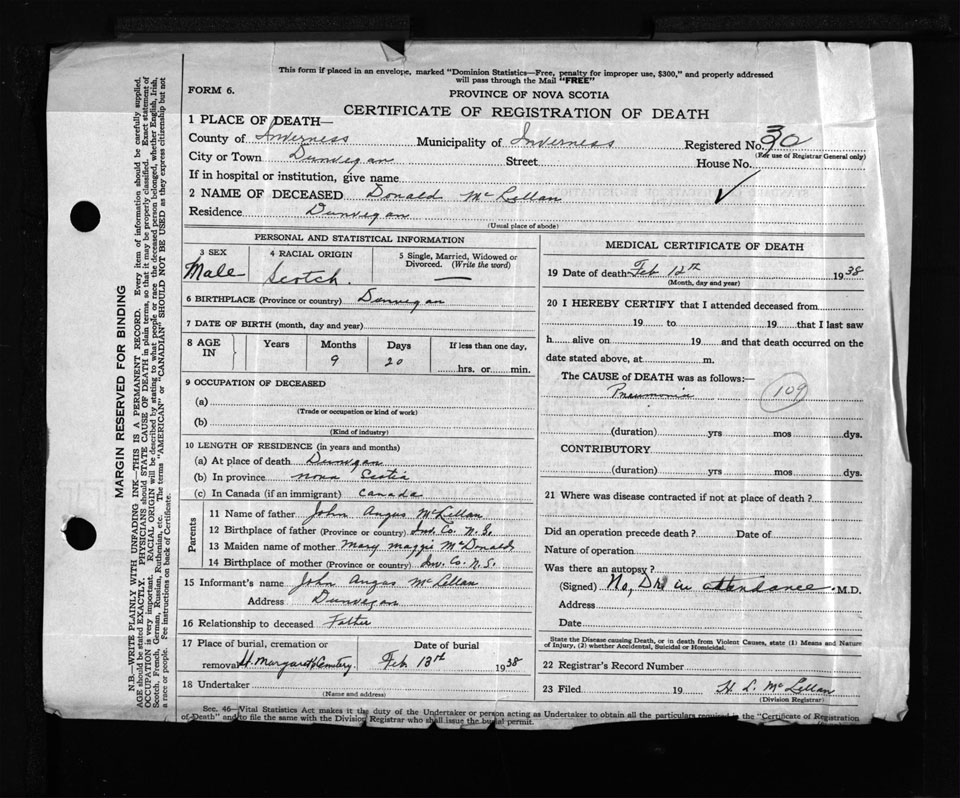 This form if placed in an envelope, marked "Dominion Statistics—Free, penalty for improper use, $300," and properly addressed
will pass through the Mail "FREE"
FORM 6.
PROVINCE OF NOVA SCOTIA
CERTIFICATE OF REGISTRATION OF DEATH
1 PLACE OF DEATH—
County of Inverness Municipality of Inverness Registered No. 30
(For use of Registrar General only)
City or Town Dunvegan Street House No.
If in hospital or institution, give name
2 NAME OF DECEASED Donald McLellan
Residence Dunvegan
(Usual place of abode)
PERSONAL AND STATISTICAL INFORMATION
3 SEX Male
4 RACIAL ORIGIN Scotch.
5 Single, Married, Widowed or
Divorced. (Write the word) —
6 BIRTHPLACE (Province or country) Dunvegan
7 DATE OF BIRTH (month, day and year)
8 AGE IN Years Months 9 Days 20 If less than one day,
hrs. or min.
9 OCCUPATION OF DECEASED
(a)
(Trade or occupation or kind of work)
(b)
(Kind of industry)
10 LENGTH OF RESIDENCE (in years and months)
(a) At place of death Dunvegan
(b) In province nova Scotia
(c) In Canada (if an immigrant) Canada
Parents
11 Name of father John Angus McLellan
12 Birthplace of father (Province or country) Inv. Co. N.S.
13 Maiden name of mother Mary maggi McDonald
14 Birthplace of mother (Province or country) Inv. Co. N.S.
15 Informant's name John Angus McLellan
Address Dunvegan
16 Relationship to deceased Father
17 Place of burial, cremation or
removal St. Margaret's Cemetery.
Date of burial
Feb 13th 1938
18 Undertaker
(Name and address)
MEDICAL CERTIFICATE OF DEATH
19 Date of death Feb 12th 1938
(Month, day and year)
20 I HEREBY CERTIFY that I attended deceased from
19 to 19 that I last saw
h alive on 19 and that death occurred on the
date stated above, at m.
The CAUSE of DEATH was as follows:—
Pneumonia 109
(duration) yrs mos dys.
CONTRIBUTORY
(duration) yrs mos dys.
21 Where was disease contracted if not at place of death?
Did an operation precede death? Date of
Nature of operation
Was there an autopsy?
(Signed) No, Dr in attendance. M.D.
Address
Date
State the Disease causing Death, or in death from Violent Causes, state (1) Means and Nature
of Injury, (2) whether Accidental, Suicidal or Homicidal.
22 Registrar's Record Number
23 Filed 19 H L. McLellan
(Division Registrar)
Sec. 46—Vital Statistics Act makes it the duty of the Undertaker or person acting as Undertaker to obtain all the particulars required in the "Certificate of Registration
of Death" and to file the same with the Division Registrar who shall issue the burial permit.
MARGIN RESERVED FOR BINDING
N.B.—WRITE PLAINLY WITH UNFADING INK—THIS IS A PERMANENT RECORD. Every item of information should be carefully supplied.
AGE should be stated EXACTLY. PHYSICIANS should STATE CAUSE OF DEATH in plain terms, so that it may be properly classified. Exact statement of
OCCUPATION is very important. RACIAL ORIGIN will be described by stating to what people or race the deceased person belonged, whether English, Irish,
Scotch, French, German, Russian, Ruthenian, etc. The terms "AMERICAN" or "CANADIAN" SHOULD NOT BE USED as they express citizenship but not
a race or people. Fee instructions on back of Certificate.